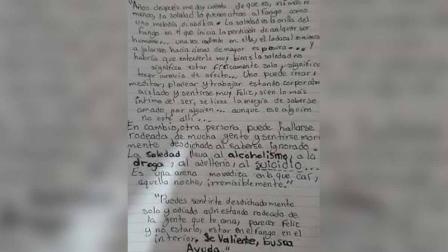 "Años después me doy cuenta de que es, ni más ni
menos, la soledad la puerta atrás al fango como
una melodía diabólica. La soledad es la orilla del
fango en el que inicia la perdición de cualquier ser
humano... una vez adentro en ella, el lodazal comienza
a jalarse hacia zonas de mayor espesura... Y
habría que entenderlo muy bien: la soledad no
significa estar físicamente solo, significa
tener carencia de afecto... Uno puede crear,
meditar, planear y trabajar estando corporalmente
aislado y sentirse muy feliz, si en lo más
íntimo del ser, se lleva la alegría de saberse
amado por alguien... aunque ese alguien
no esté allí...
En cambio, otra persona puede hallarse
rodeada de mucha gente y sentirse
mente desdichado al saberse ignorado.
La soledad lleva al alcoholismo, a la
droga, al adulterio, al suicidio...
Es una arena movediza en la que caí,
aquella noche, irremisiblemente."
"Puedes sentirte desdichadamente
solo y odiado aún estando rodeada de
la gente que te ama, parecer feliz
y no estarlo, estar en el fango en el
interior, Se Valiente, busca
Ayuda."